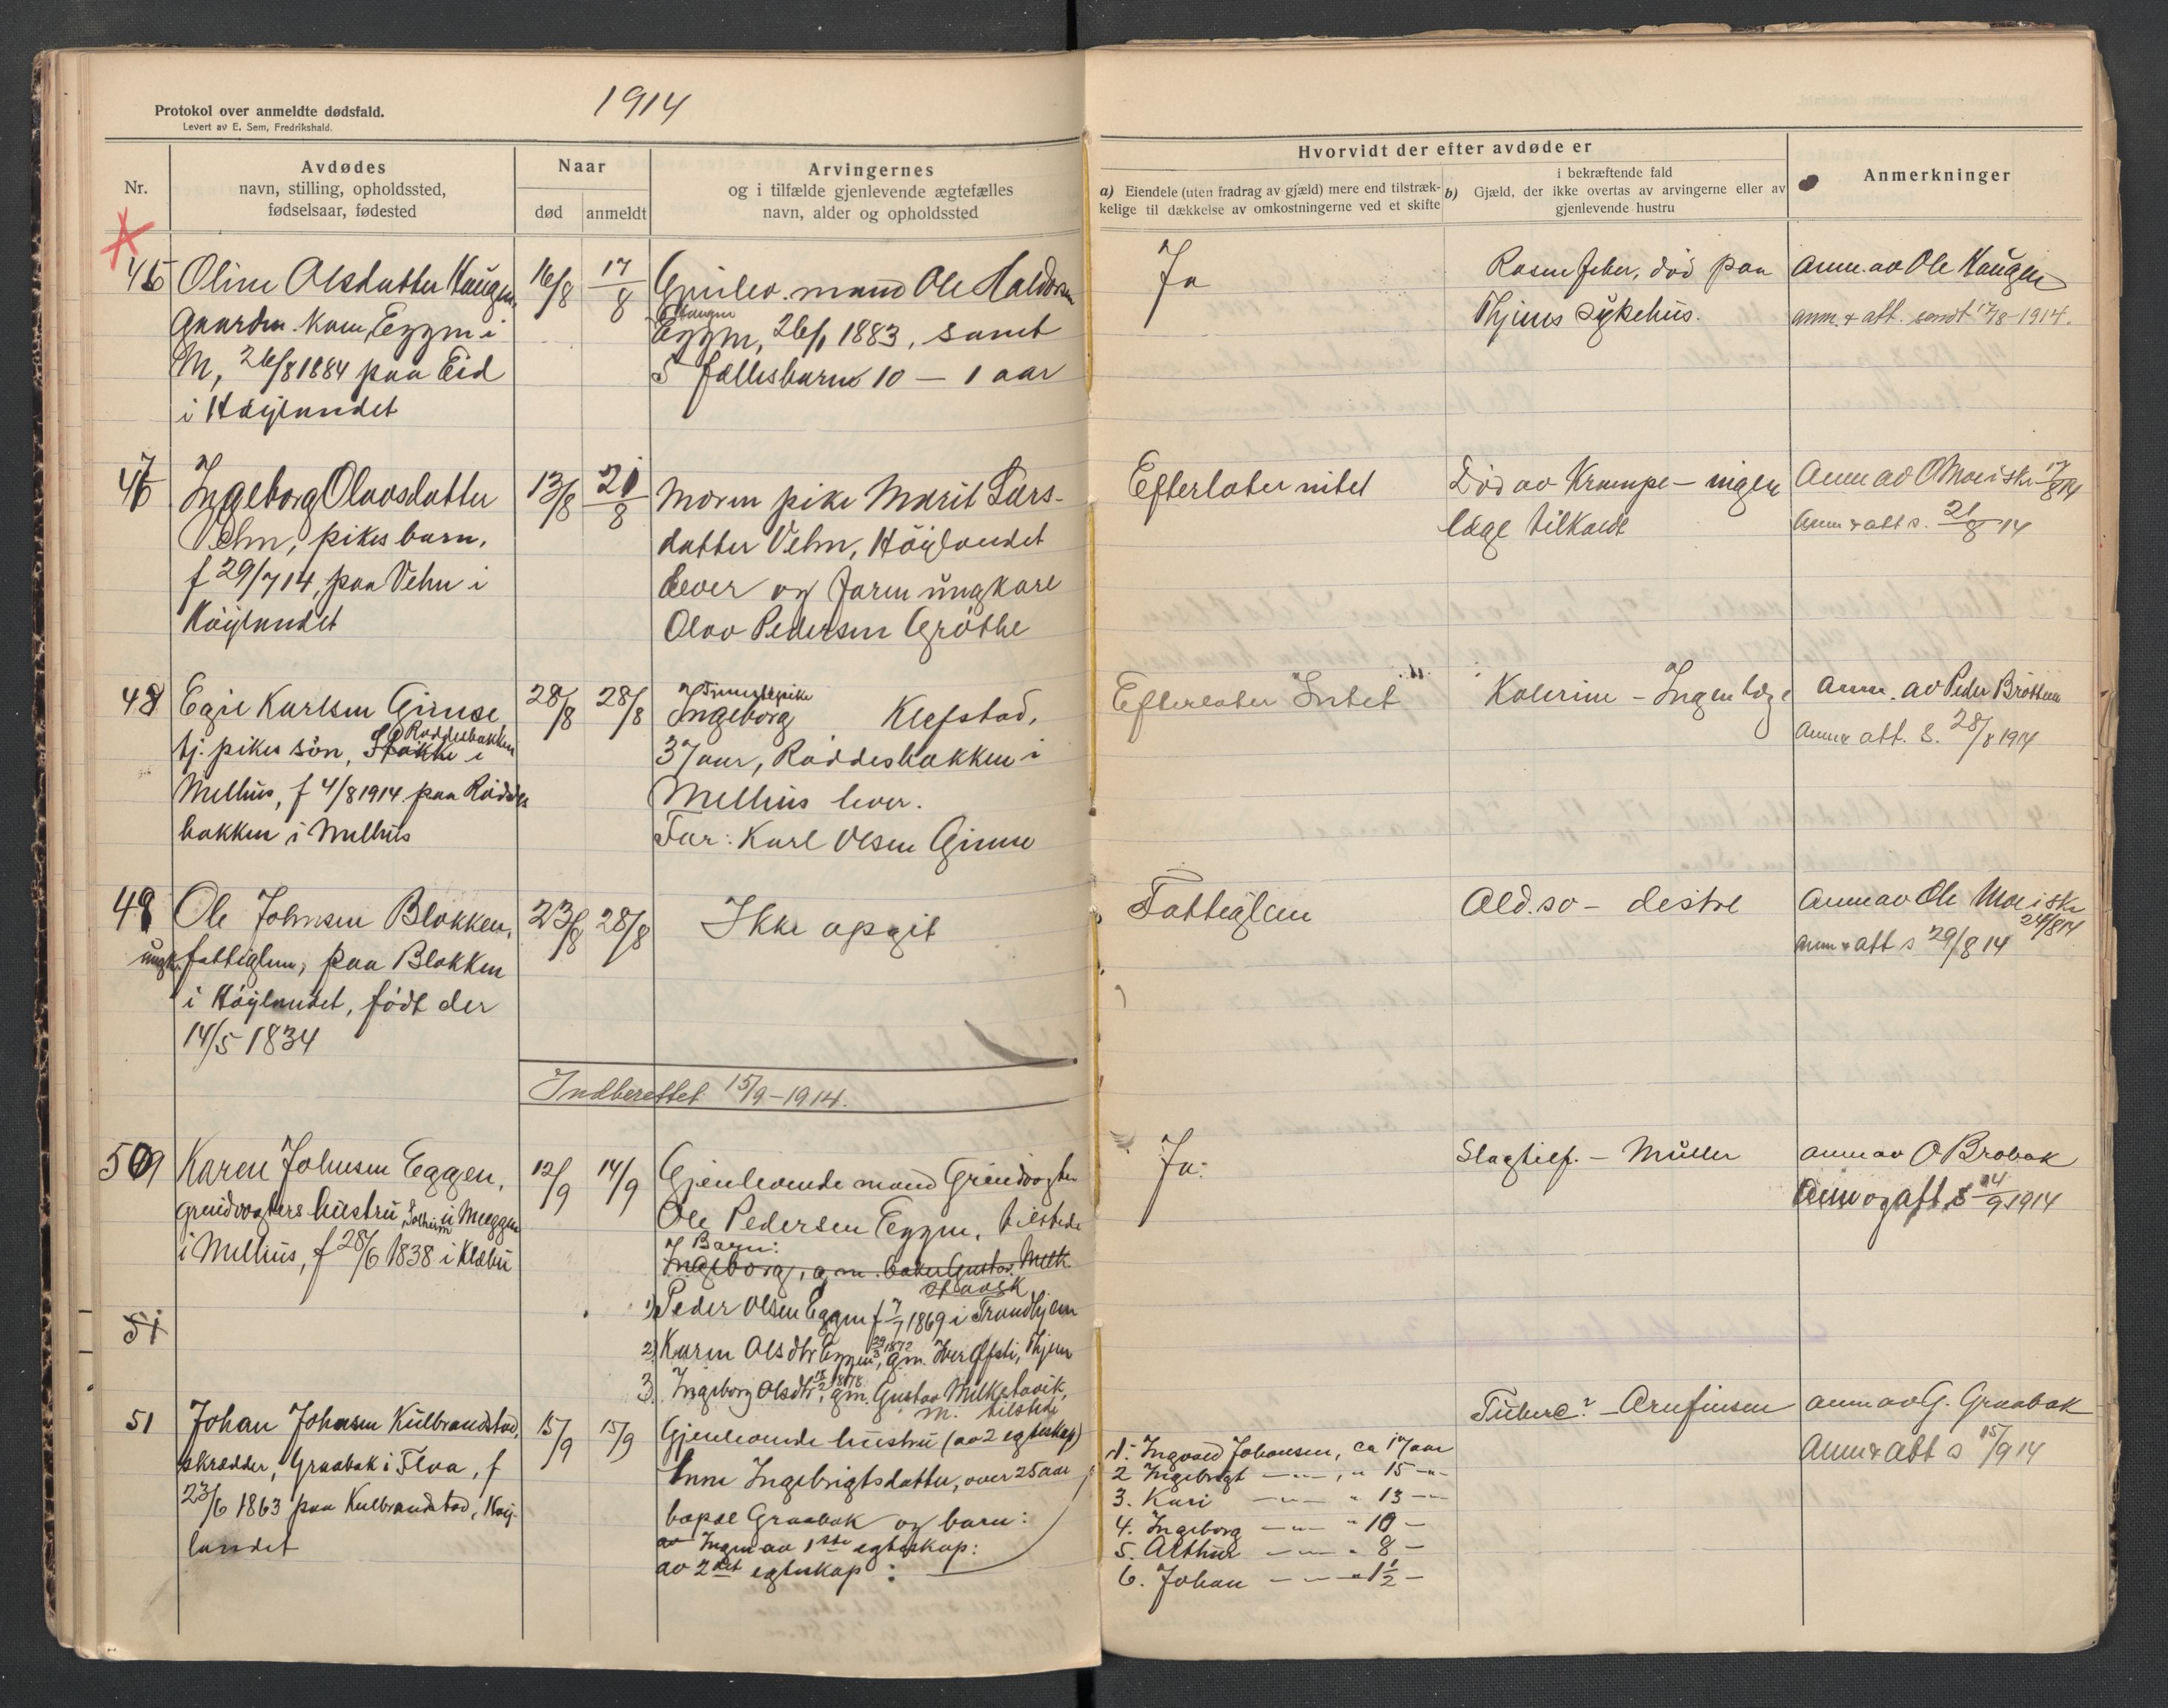 1914
Protokol over anmeldte dødsfald.
Levert av E. Sem, Fredrikshald.
Nr.
Avdødes
navn, stilling, opholdssted,
fødselsaar, fødested
Naar
død
anmeldt
Arvingernes
og i tilfælde gjenlevende ægtefælles
navn, alder og opholdssted
Hvorvidt der efter avdøde er
a) Eiendele (uten fradrag av gjæld) mere end tilstræk-
kelige til dækkelse av omkostningerne ved et skifte
i bekræftende fald
b) Gjæld, der ikke overtas av arvingerne eller av
gjenlevende hustru
Anmerkninger
Oline Olsdatter Haugen,
Eggen i
M, 26/8 1884 paa Eid
i Höylandet
16/8
17/8
Gjenlev. mand Ole Haldorsen
Haugen
Eggen, 26/1 1883, samt
5 fællesbarn 10 – 1 aar
Ja
Rosenfeber, död paa
Thjems sykehus.
Anm. av Ole Haugen
anm. & att. sendt 17/8-1914.
Ingeborg Olavsdatter
Vehn, pikebarn,
f 29/7 14, paa Vehn i
Höylandet
13/8
21/8
Moren pike Marit Lars-
datter Vehn, Höylandet
lever og faren ungkarl
Olav Pedersen Gröthe
Efterlater intet
Död av Krampe – ingen
læge tilkaldt
Anm av O Moe isk 17/8 14
Anm & att s. 21/8 14
48
Karlsen Gimse
tj. pikes sön, Stokke i
Röddesbakken
Melhus, f 4/8 1914 paa Röddes
bakken i Melhus
28/8
28/8
Tjenestepike
Ingeborg Klefstad,
37 aar, Röddesbakken i
Melhus lever.
Far: Karl Olsen Gimse
Efterlater Intet
Kolerine – Ingen læge
Anm. av Peder Bröttem
Anm & att. s. 28/8 1914
49
Ole Johnsen Blokken,
ungk. fattiglem, paa Blokken
i Höylandet, födt der
14/5 1834
23/8
28/8
Ikke opgit
Fattiglem
Ald.sv – distrl
Anm av Ole Moe isk
24/8 14
anm & att s 29/8 14
Indberettet 15/9 – 1914.
50
Karen Johnsen Eggen,
grindvogters hustru Solheim i M eggen
i Melhus, f 28/6 1838 i Klæbu
12/9
14/9
Gjenlevende mand Grindvogter
Ole Pedersen Eggen, tilstede
Barn:
Ingeborg, g.m. baker Gustav Melk
stavik
1) Peder Olsen Eggen f 7/7 1869 i Trondhjem
2) Karen Olsdtr Eggen, 29/3 1872 g.m. Iver Ofsti, Thjem
3. Ingeborg Olsdtr, 1878 gm. Gustav Melkstavik,
M. tilstede
Ja:
Slagtilf. – Müller
anm av O Brobak
Anm og att s 14/9 1914
51
51
Johan Johnsen Kulbrandstad,
skrædder, Graabak i Flaa, f
23/6 1863 paa Kulbrandstad, Höy-
landet
15/9
15/9
Gjenlevende hustru (av 2 egteskap)
Anne Ingebrigtsdatter, over 25 aar
bopæl Graabak og barn:
av Ingen av 1ste egteskap:
av 2det egteskap:
1. Ingvald Johansen, ca 17 aar
2 Ingebrigt –„– , „ 15 –„–
3. Kari –„– „ 13 –„–
4. Ingeborg –„– „ 10 –
5. Arthur –„– „ 8 –
6. Johan –„– „ 1½ –
Tuberc? – Arnfinsen
anm av G. Graabak
Anm & att s 15/9 14